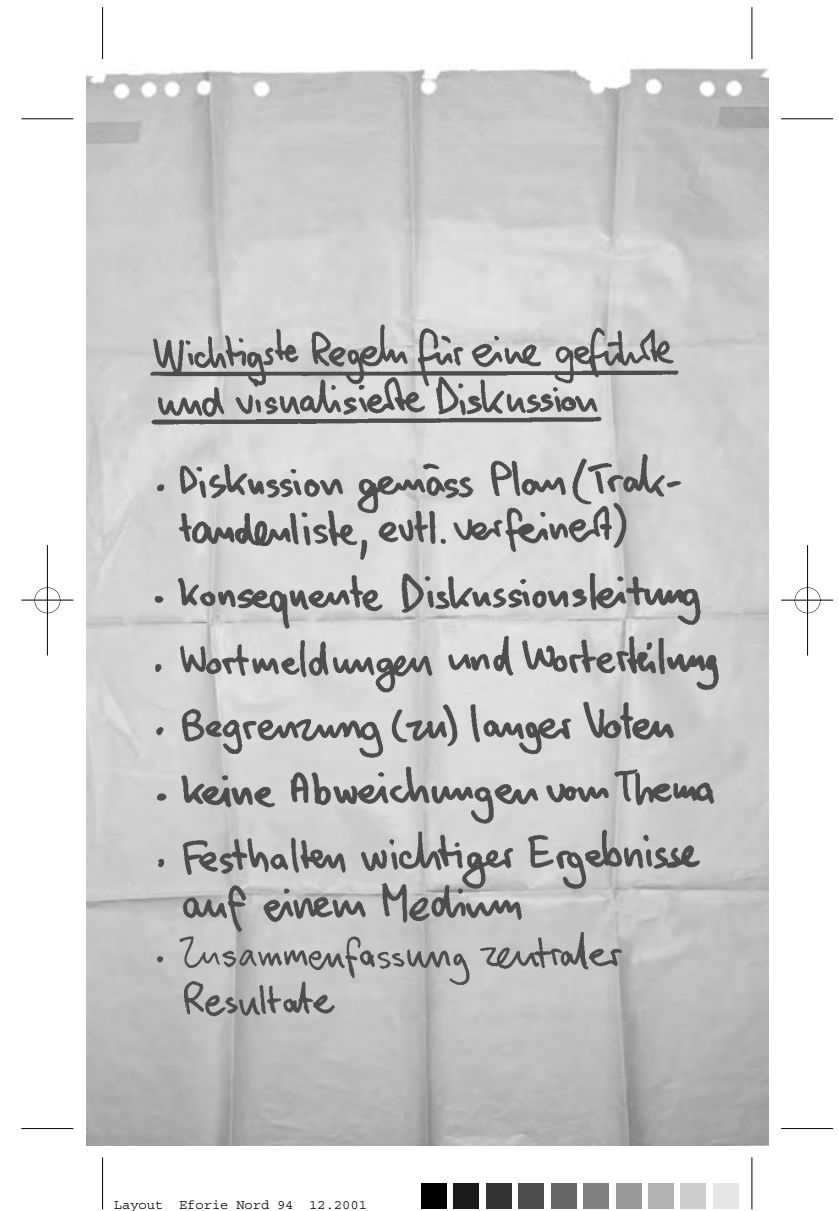 Wichtigste Regeln für eine geführte
und visualisierte Diskussion
· Diskussion gemäss Plan (Trak-
tandenliste, evtl. verfeinert)
· Konsequente Diskussionsleitung
· Wortmeldungen und Worterteilung
· Begrenzung (zu) langer Voten
· keine Abweichungen vom Thema
· Festhalten wichtiger Ergebnisse
auf einem Medium
· Zusammenfassung zentraler
Resultate
Layout Eforie Nord 94 12.2001